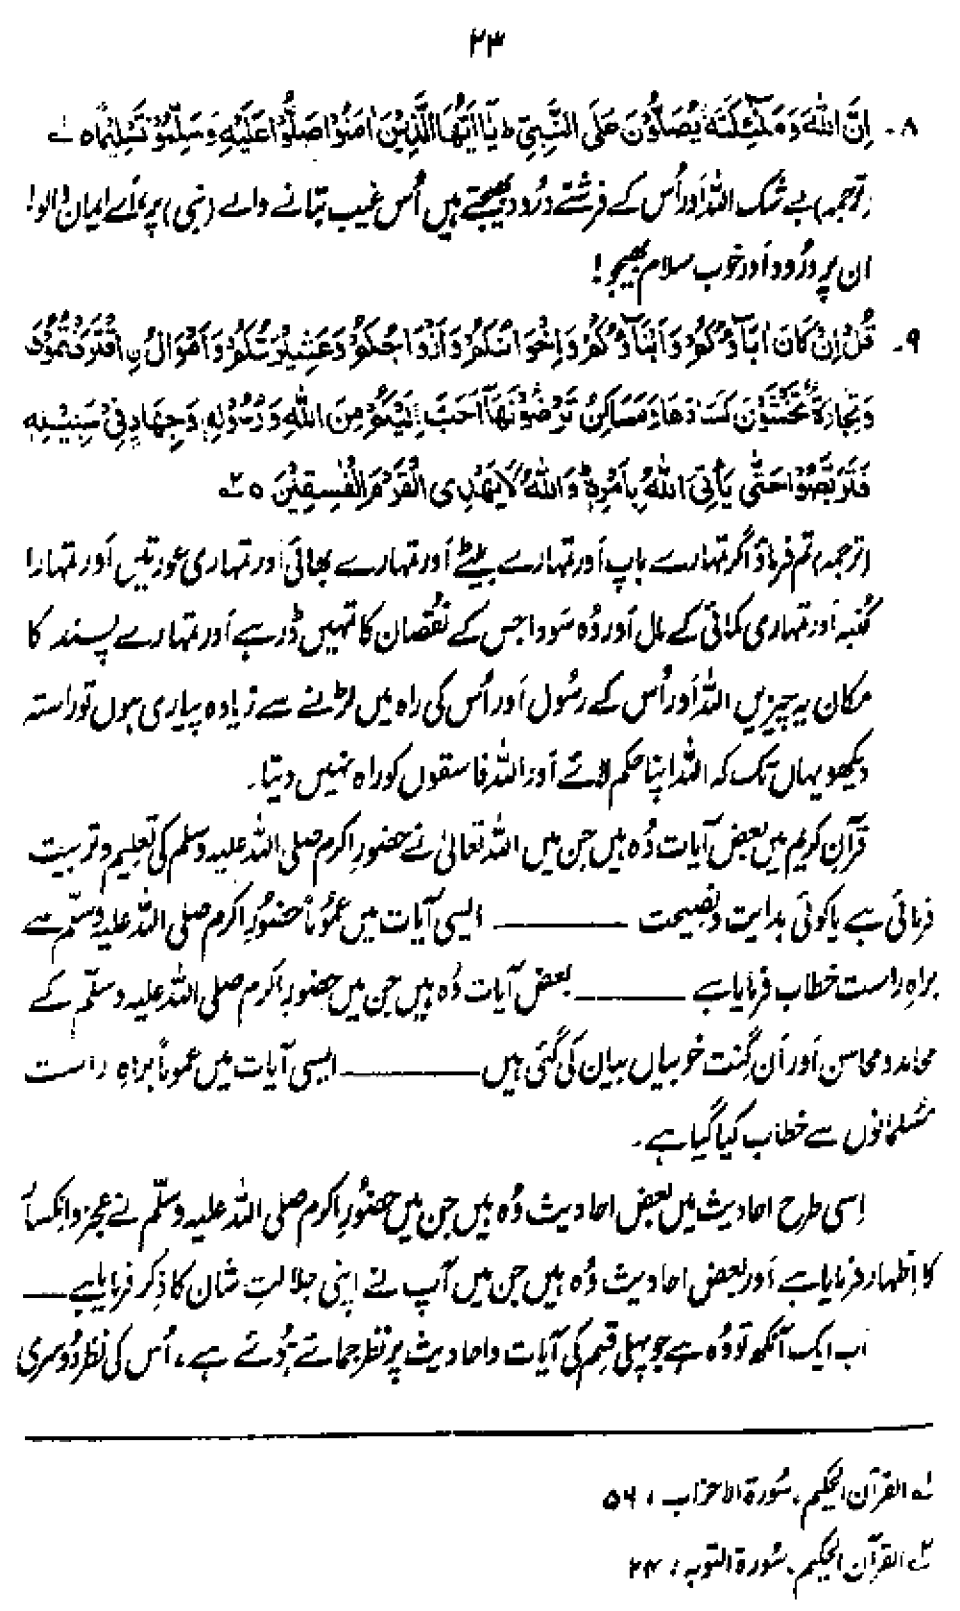 ۲۳
۸۔ اِنَّ اللّٰهَ وَمَلٰٓئِكَتَهٗ يُصَلُّوْنَ عَلَى النَّبِيِّ ط يٰٓاَيُّهَا الَّذِيْنَ اٰمَنُوْا صَلُّوْا عَلَيْهِ وَسَلِّمُوْا تَسْلِيْمًا ه ۱؎
(ترجمہ) بے شک اللہ اور اُس کے فرشتے درُود بھیجتے ہیں اُس غیب بتانے والے (نبی) پر، اَے ایمان والو!
ان پر درُود اَور خوب سلام بھیجو!
۹۔ قُلْ اِنْ كَانَ اٰبَآؤُكُمْ وَاَبْنَآؤُكُمْ وَاِخْوَانُكُمْ وَاَزْوَاجُكُمْ وَعَشِيْرَتُكُمْ وَاَمْوَالُ نِ اقْتَرَفْتُمُوْهَا
وَتِجَارَةٌ تَخْشَوْنَ كَسَادَهَا وَمَسَاكِنُ تَرْضَوْنَهَآ اَحَبَّ اِلَيْكُمْ مِنَ اللّٰهِ وَرَسُوْلِهٖ وَجِهَادٍ فِيْ سَبِيْلِهٖ
فَتَرَبَّصُوْا حَتّٰى يَأْتِيَ اللّٰهُ بِاَمْرِهٖ ط وَاللّٰهُ لَا يَهْدِى الْقَوْمَ الْفٰسِقِيْنَ ه ۲؎
(ترجمہ) تم فرماؤ اگر تمہارے باپ اَور تمہارے بیٹے اَور تمہارے بھائی اَور تمہاری عورتیں اَور تمہارا
کُنبہ اَور تمہاری کمائی کے مال اَور وُہ سَودا جس کے نقصان کا تمہیں ڈر ہے اَور تمہارے پسند کا
مکان یہ چیزیں اللہ اَور اُس کے رسُول اَور اُس کی راہ میں لڑنے سے زیادہ پیاری ہوں تو راستہ
دیکھو یہاں تک کہ اللہ اپنا حکم لائے اَور اللہ فاسقوں کو راہ نہیں دیتا۔
قرآنِ کریم میں بعض آیات وُہ ہیں جن میں اللہ تعالیٰ نے حضورِ اکرم صلی اللہ علیہ وسلم کی تعلیم و تربیت
فرمائی ہے یا کوئی ہدایت و نصیحت ——— ایسی آیات میں عمُوماً حضُورِ اکرم صلی اللہ علیہ وسلّم سے
براہِ راست خطاب فرمایا ہے ——— بعض آیات وُہ ہیں جن میں حضورِ اکرم صلی اللہ علیہ وسلّم کے
محامد و محاسن اَور اَن گِنت خوبیاں بیان کی گئی ہیں ——— ایسی آیات میں عموماً براہِ راست
مُسلمانوں سے خطاب کیا گیا ہے۔
اِسی طرح احادیث میں بعض احادیث وُہ ہیں جن میں حضُورِ اکرم صلی اللہ علیہ وسلّم نے عجز و انکسار
کا اِظہار فرمایا ہے اَور بعض احادیث وُہ ہیں جن میں آپ نے اپنی جلالتِ شان کا ذِکر فرمایا ہے —
اَب ایک آنکھ تو وُہ ہے جو پہلی قسم کی آیات و احادیث پر نظر جمائے ہوئے ہے، اُس کی نظر دُوسری
۱؎ القرآن الحکیم، سُورۃ الاحزاب، ۵۶
۲؎ القرآن الحکیم، سُورۃ التوبہ: ۲۴